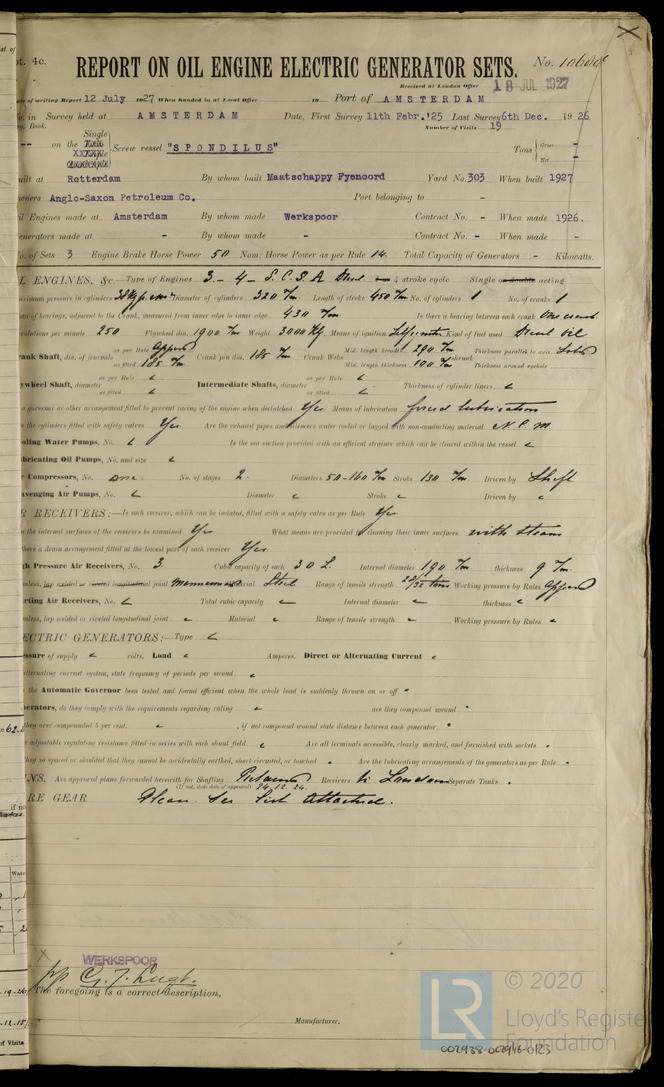 pt. 4c. REPORT ON OIL ENGINE ELECTRIC GENERATOR SETS. No.
Received at London Office 18 JUL 1927
of writing Report 12 July 1927 When handed in at Local Office 19 Port of AMSTERDAM
in Survey held at AMSTERDAM Date, First Survey 11th Febr. '25 Last Survey 6th Dec. 1926
Book. Number of Visits 19
Single
-- on the Screw vessel "SPONDILUS" Tons Gross -
Net -
uilt at Rotterdam By whom built Maatschappy Fyenoord Yard No. 303 When built 1927
wners Anglo-Saxon Petroleum Co. Port belonging to -
il Engines made at Amsterdam By whom made Werkspoor Contract No. - When made 1926.
enerators made at - By whom made - Contract No. - When made -
o. of Sets 3 Engine Brake Horse Power 50 Nom. Horse Power as per Rule 14. Total Capacity of Generators - Kilowatts.
L ENGINES, &c.—Type of Engines 3 - 4 - S.C.S.A Diesel 4 stroke cycle Single or double acting
aximum pressure in cylinders Diameter of cylinders 320 Length of stroke 450 No. of cylinders 1 No. of cranks 1
an of bearings, adjacent to the Crank, measured from inner edge to inner edge 430 Is there a bearing between each crank one crank
evolutions per minute 250 Flywheel dia. 1900 Weight 3000 Kg. Means of ignition Kind of fuel used Diesel oil
rank Shaft, dia. of journals as per Rule Appd as fitted 185 Crank pin dia. 185 Crank Webs Mid. length breadth 290 Mid. length thickness 100 shrunk Thickness parallel to axis Solid Thickness around eyehole
ywheel Shaft, diameter as per Rule as fitted Intermediate Shafts, diameter as per Rule as fitted Thickness of cylinder liners
a governor or other arrangement fitted to prevent racing of the engine when declutched Yes Means of lubrication forced lubrication
re the cylinders fitted with safety valves Yes Are the exhaust pipes and silencers water cooled or lagged with non-conducting material N.C.M.
ooling Water Pumps, No. Is the sea suction provided with an efficient strainer which can be cleared within the vessel
ubricating Oil Pumps, No. and size
r Compressors, No. one No. of stages 2. Diameters 50-160 Stroke 130 Driven by Shaft
avenging Air Pumps, No. Diameter Stroke Driven by
R RECEIVERS:—Is each receiver, which can be isolated, fitted with a safety valve as per Rule Yes
n the internal surfaces of the receivers be examined Yes What means are provided for cleaning their inner surfaces with steam
there a drain arrangement fitted at the lowest part of each receiver Yes
gh Pressure Air Receivers, No. 3 Cubic capacity of each 30 L. Internal diameter 190 thickness 9
mless, lap welded or riveted longitudinal joint Material Steel Range of tensile strength 28/32 tons Working pressure by Rules Appd
arting Air Receivers, No. Total cubic capacity Internal diameter thickness
mless, lap welded or riveted longitudinal joint Material Range of tensile strength Working pressure by Rules
ECTRIC GENERATORS:—Type
essure of supply volts. Load Amperes. Direct or Alternating Current
alternating current system, state frequency of periods per second
s the Automatic Governor been tested and found efficient when the whole load is suddenly thrown on or off
nerators, do they comply with the requirements regarding rating are they compound wound
they over compounded 5 per cent. , if not compound wound state distance between each generator
e adjustable regulating resistance fitted in series with each shunt field Are all terminals accessible, clearly marked, and furnished with sockets
they so spaced or shielded that they cannot be accidentally earthed, short circuited, or touched Are the lubricating arrangements of the generators as per Rule
NS. Are approved plans forwarded herewith for Shafting Retained Receivers in London Separate Tanks
(If not, state date of approval) 24.12.24.
RE GEAR Please see list attached.
WERKSPOOR
pp G. J. Lugt.
The foregoing is a correct description.
Manufacturer.
LR © 2020
Lloyd's Register
Foundation
002938-002946-0123